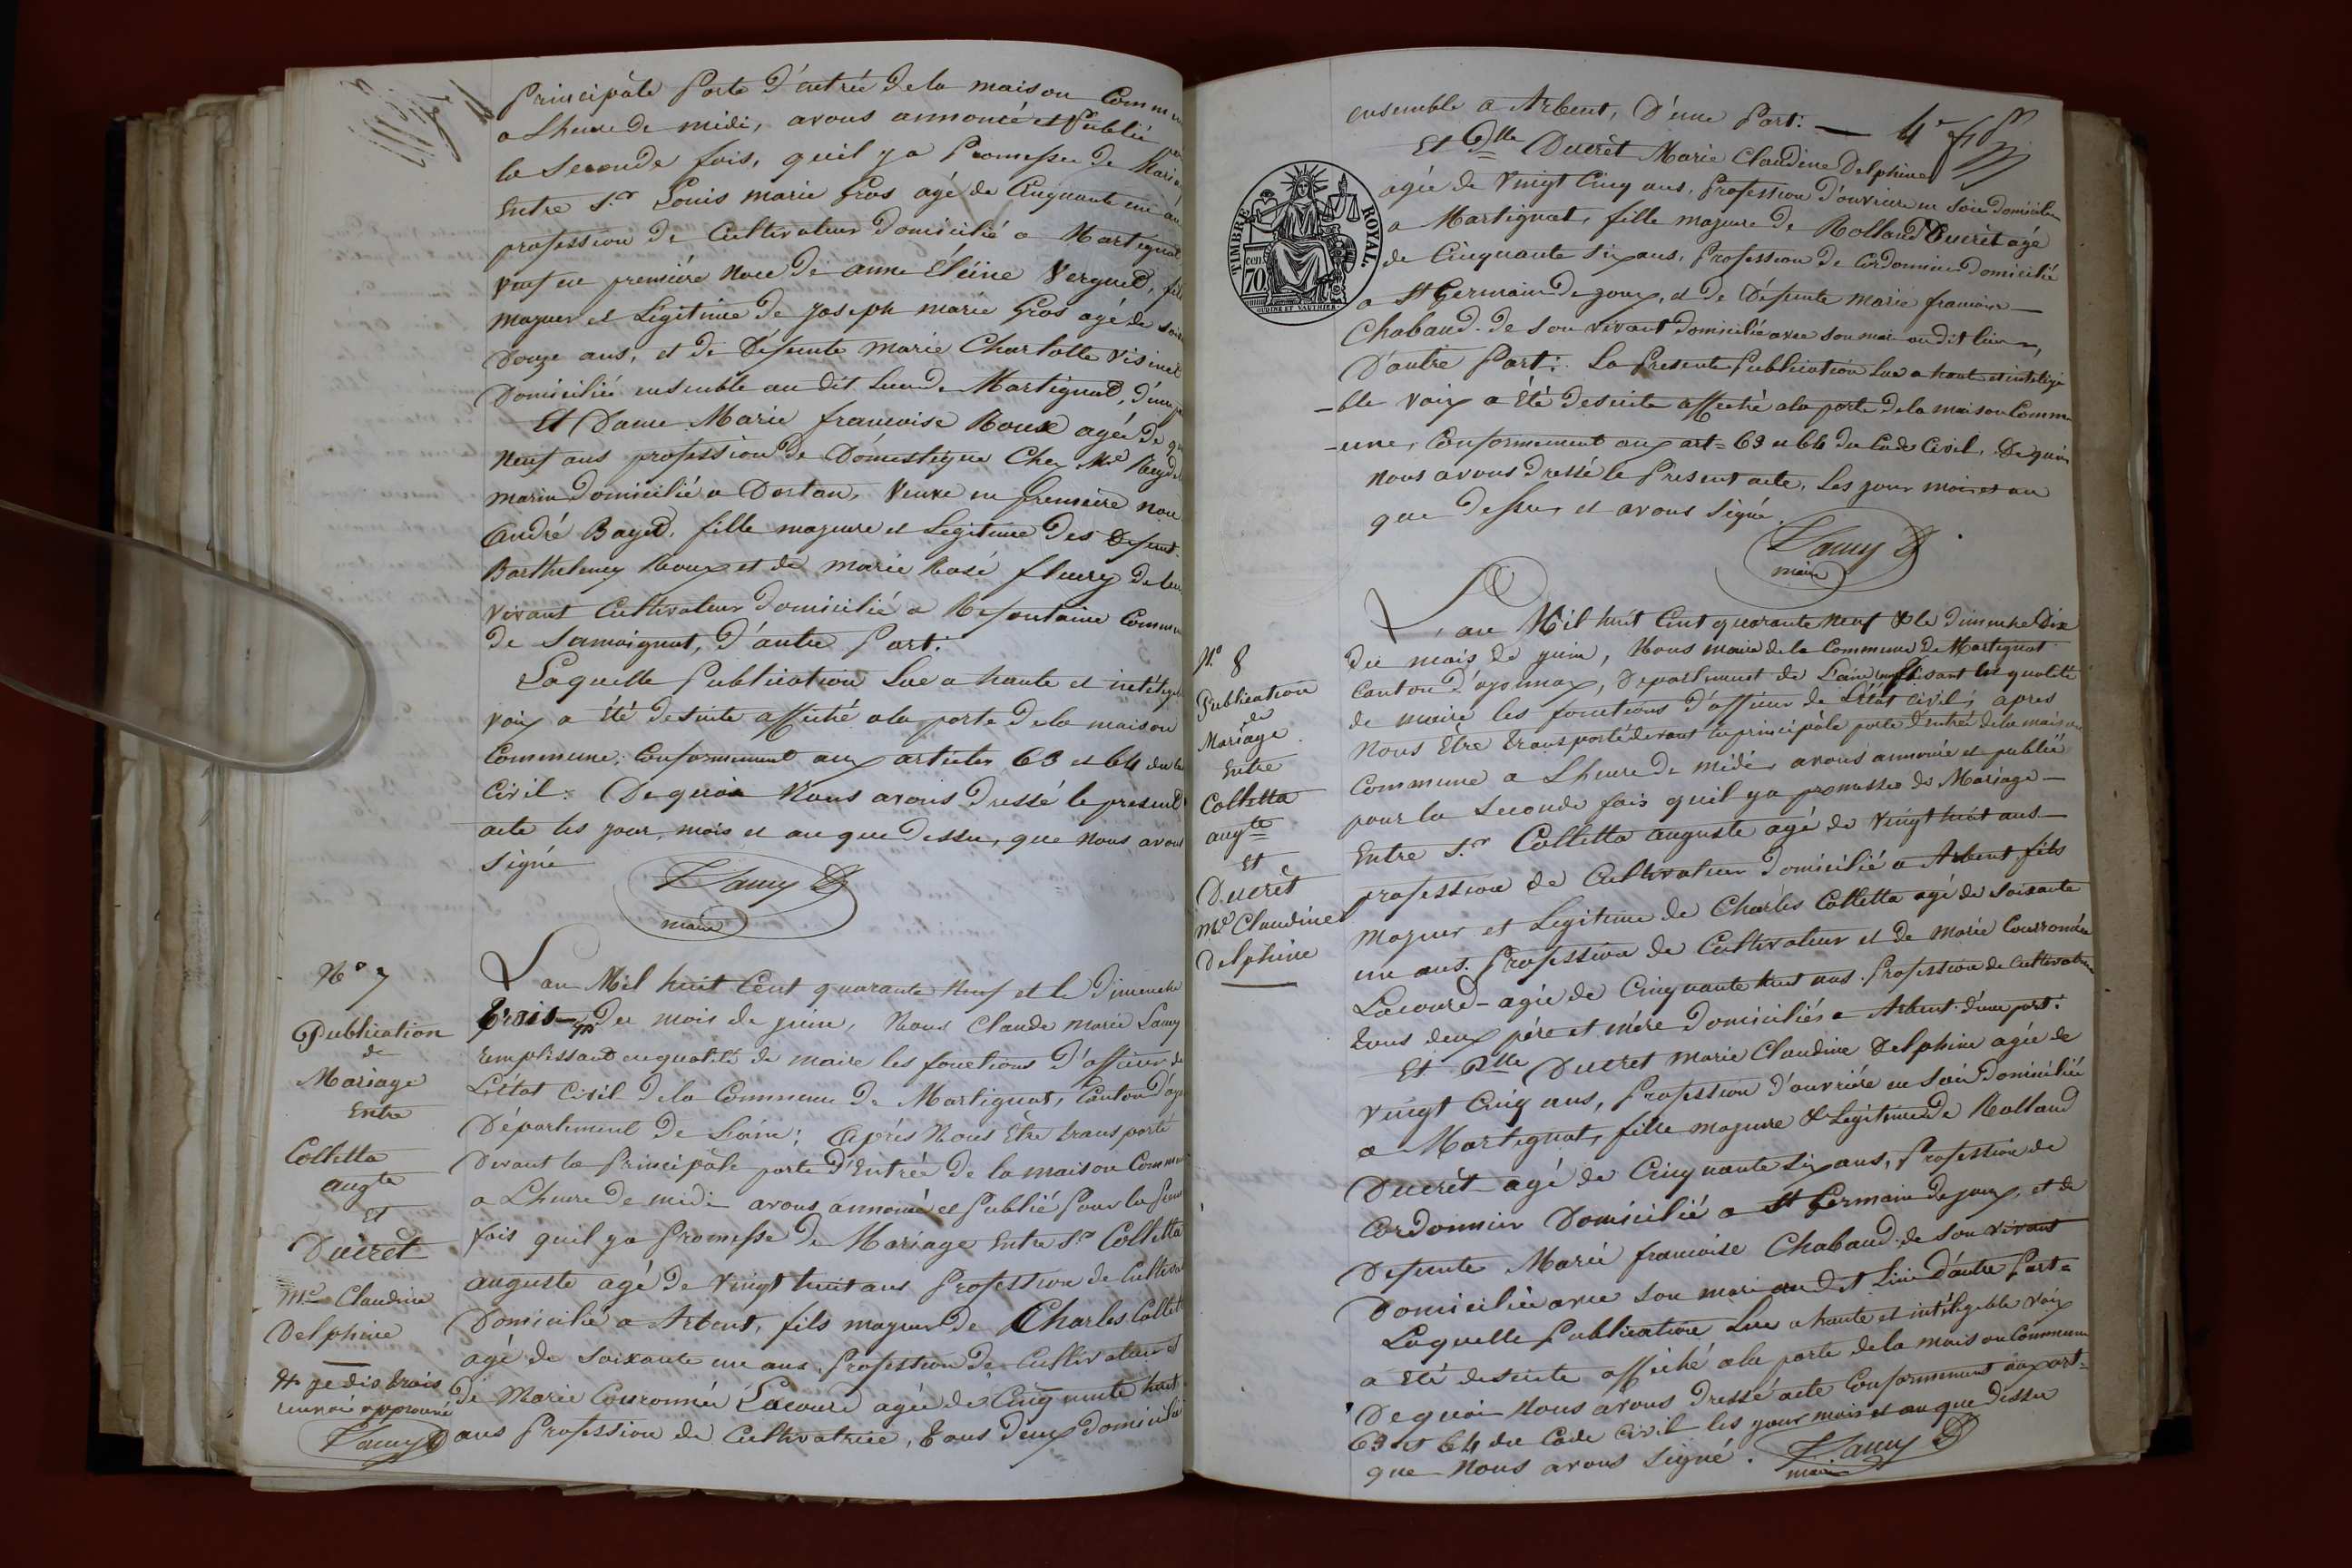 Principale Porte d'entrée de la maison Commu
a Lheure de midi, avons annoncé et Publié
la Seconde fois, quil y a Promesse de Maria
Entre Sr Louis marie Gros agé de Cinquante un an
profession de Cultivateur domicilié a Martignat
veuf en première noce de anne Eléine Verguet, fils
majeur et Légitime de Joseph marie Gros agé de soix
Douze ans, et de Défunte Marie Charlotte Visinet
Domicilié ensemble au dit lieu de Martignat, d'une
Et Dame Marie francoise Roux agée de
Neuf ans profession de Domestique Chez Mr Reyd
marin domicilié a Dortan, Veuve en premiere noce
André Bayet, fille majeure et Legitime des Defunt
Barthelemy Roux et de marie Rosé fleury de leur
vivant Cultivateur domicilié a Resontaine Commu
de Samoignat, d'autre Part.
Laquelle Publication Lue a haute et intélig
voix a été desuite affiché a la porte de la maison
Commune, Conformement aux articles 63 et 64 du
Civil. De quoi Nous avons Dressé le present
acte les jour, mois et an que dessu, que nous avons
Signé
Lamy
maire
N° 7
Publication
de
Mariage
Entre
Colletta
augte
Et
Ducrêt
Me Claudine
Delphine
je dis trois
renvoi approuvé
Lamy
Lan Mil huit Cent quarante Neuf et le Dimenche
trois Du mois de juin, Nous Claude Marie Lamy
remplissant en qualité de maire les fonctions d'officier de
L'état Civil de la Commune de Martignat, Canton d'oyo
Département de Lain; après Nous Être transporté
Devant la Principale porte d'Entrée de la maison Commu
a L'heure de midi avons annoncé et Publié Pour la Prem
fois quil y a Promesse de Mariage Entre Sr Colletta
auguste agé de vingt huit ans Profession de Cultiva
Domicilié a Arbent, fils majeur de Charles Collet
agé de Soixante un ans, Profession de Cultivateur et
de Marie Couronnée Lacourd agée de Cinquante huit
ans Profession de Cultivatrice, tous Deux Domicilié
ensemble a Arbent, D'une Part. 4e
Et Dlle Ducrêt Marie Claudine Delphine
agée de Vingt Cinq ans, Profession d'ouvriere en Soie domiciliée
a Martignat, fille majeure de Rolland Ducrêt agé
de Cinquante six ans, Profession de Cordonnier domicilié
a St Germain de joux, et de Défunte Marie francoise
Chabaud de son vivant domiciliée avec son mari au dit lieu,
D'autre Part: La Presente Publication Lue a haute et inteligi
-ble voix a été desuite affiché a la porte de la maison Comm
-une, Conformement aux art= 63 et 64 du Code Civil, De quoi
nous avons dressé le Present acte, les jour mois et an
que dessu, et avons Signé.
Lamy
maire
TIMBRE ROYAL
70 cen
OUDINÉ ET VAUTHIER
N° 8
Publication
de
Mariage
Entre
Colletta
augte
Et
Ducrêt
Me Claudine
Delphine
Lan Mil huit Cent quarante Neuf & le Dimenche Dix
du mois de juin, Nous maire de la Commune de Martignat
Canton d'oyonnax, Departement de L'ain remplissant les qualité
de maire les fonctions d'officier de L'état civil, apres
nous Être transporté devant la principale porte d'entrée de la maison
Commune a Lheure de midi, avons annoncé et publié
pour la seconde fois quil y a promesse de Mariage
Entre Sr Colletta auguste agé de vingt huit ans
profession de Cultivateur domicilié a Arbent fils
majeur et Legitime de Charles Colletta agé de Soixante
un ans. Profession de Cultivateur et de Marie Couronnée
Lacourd agée de Cinquante huit ans. Profession de Cultivatrice
tous deux père et mère domiciliés a Arbent d'une part.
Et Dlle Ducret Marie Claudine Delphine agée de
vingt Cinq ans, Profession d'ouvrière en Soie Domiciliée
a Martignat, fille majeure & Legitime de Rolland
Ducrêt agé de Cinquante six ans, Profession de
Cordonnier Domicilié a St Germain de joux, et de
Defunte Marie francoise Chabaud de son vivant
Domiciliée avec son mari au dit Lieu d'autre Part=
Laquelle Publication Lue a haute et intélegible voix
a été desuite affiché a la porte de la maison Commune
De quoi nous avons Dressé acte Conformement aux art=
63 et 64 du Code civil les jour mois et an que dessu
que Nous avons Signé.
Lamy
maire